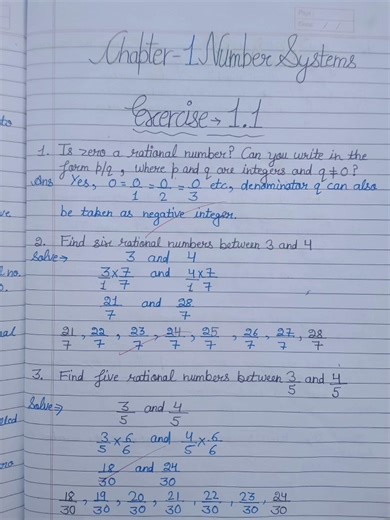 Chapter-1 Number Systems
Exercise → 1.1
1. Is zero a rational number? Can you write in the
form p/q, where p and q are integers and q ≠ 0?
Ans Yes, 0 = 0/1 = 0/2 = 0/3 etc, denominator q can also
be taken as negative integer.
2. Find six rational numbers between 3 and 4
Solve→ 3 and 4
3/1 × 7/7 and 4/1 × 7/7
21/7 and 28/7
21/7, 22/7, 23/7, 24/7, 25/7, 26/7, 27/7, 28/7
3. Find five rational numbers between 3/5 and 4/5
Solve⇒ 3/5 and 4/5
3/5 × 6/6 and 4/5 × 6/6
18/30 and 24/30
18/30, 19/30, 20/30, 21/30, 22/30, 23/30, 24/30